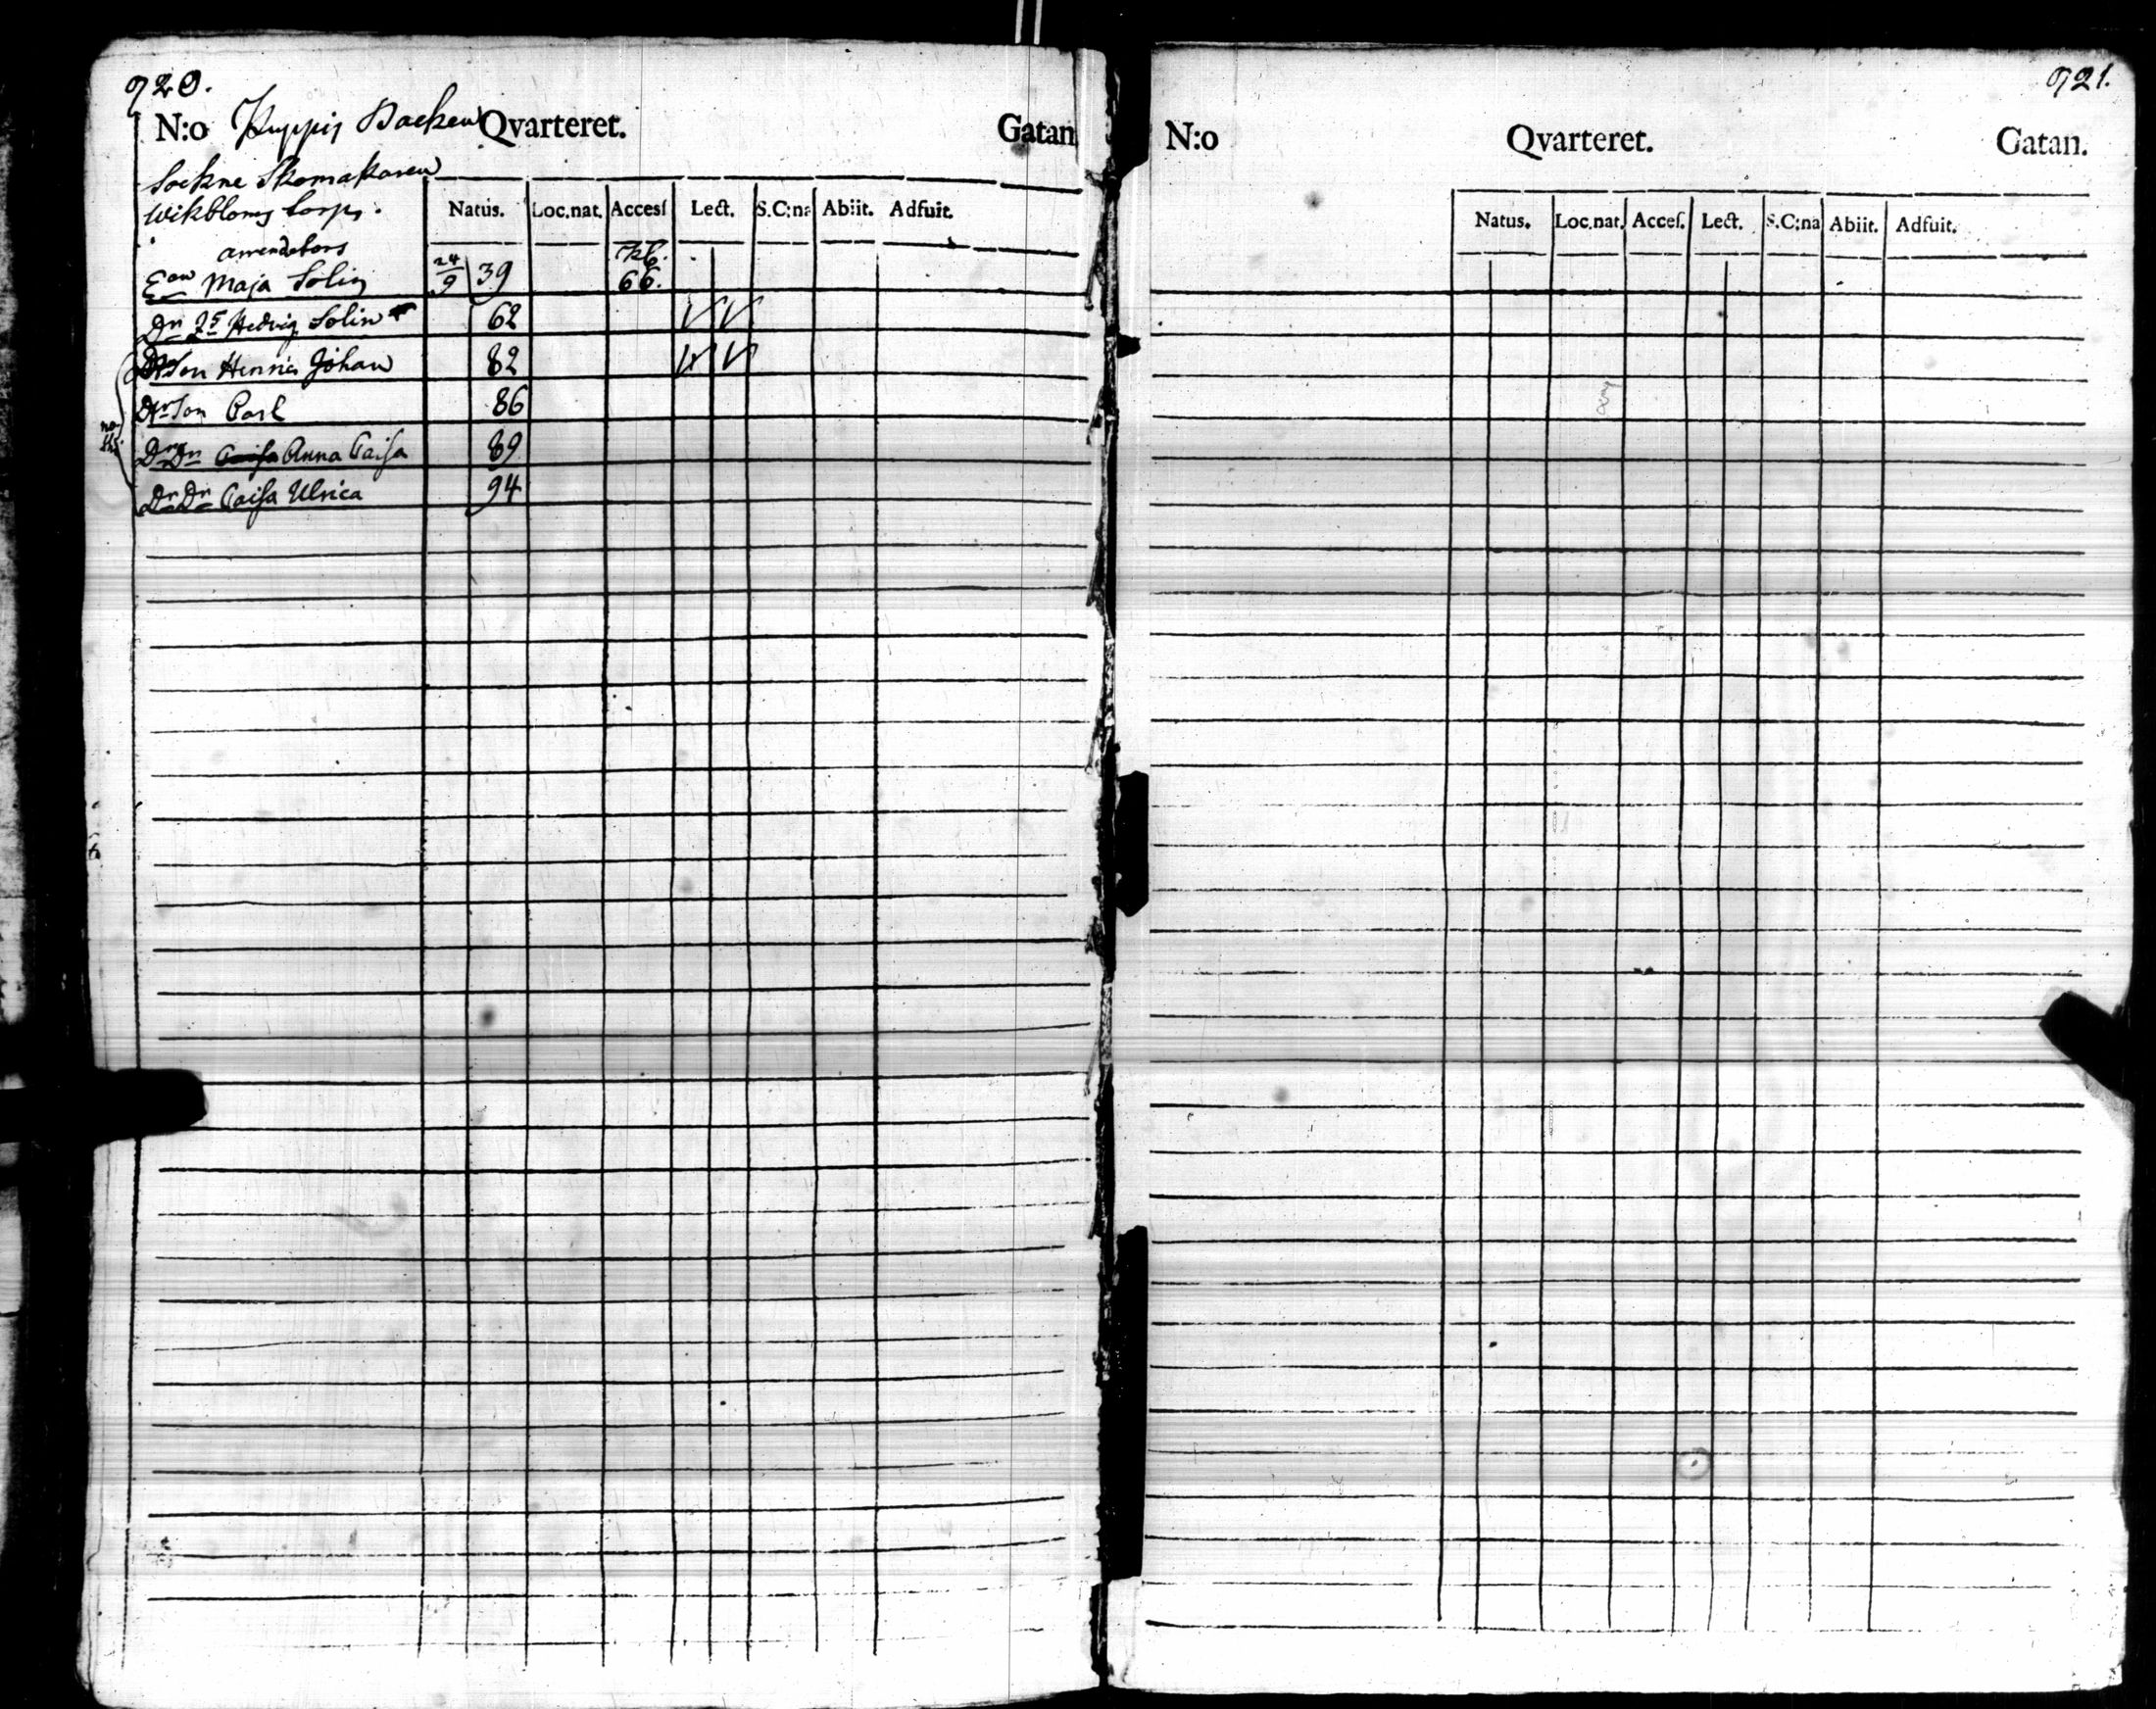 920.
N:o Kuppis Backen Qvarteret. Gatan
Sockne Skomakaren
Wikbloms torp.
Natus. Loc.nat. Accesſ Lect. S.C:na Abiit. Adfuit.
arrendators
Ean Maja Solin 24/9 39 kb. 66.
Dn Hedvig Solin 62
Son Hinric Johan 82
Son Carl 86
Dr Dn Caisa Anna Caisa 89
Dr Dn Caisa Ulrica 94
921.
N:o Qvarteret. Gatan.
Natus. Loc.nat. Acceſ. Lect. S.C:na Abiit. Adfuit.